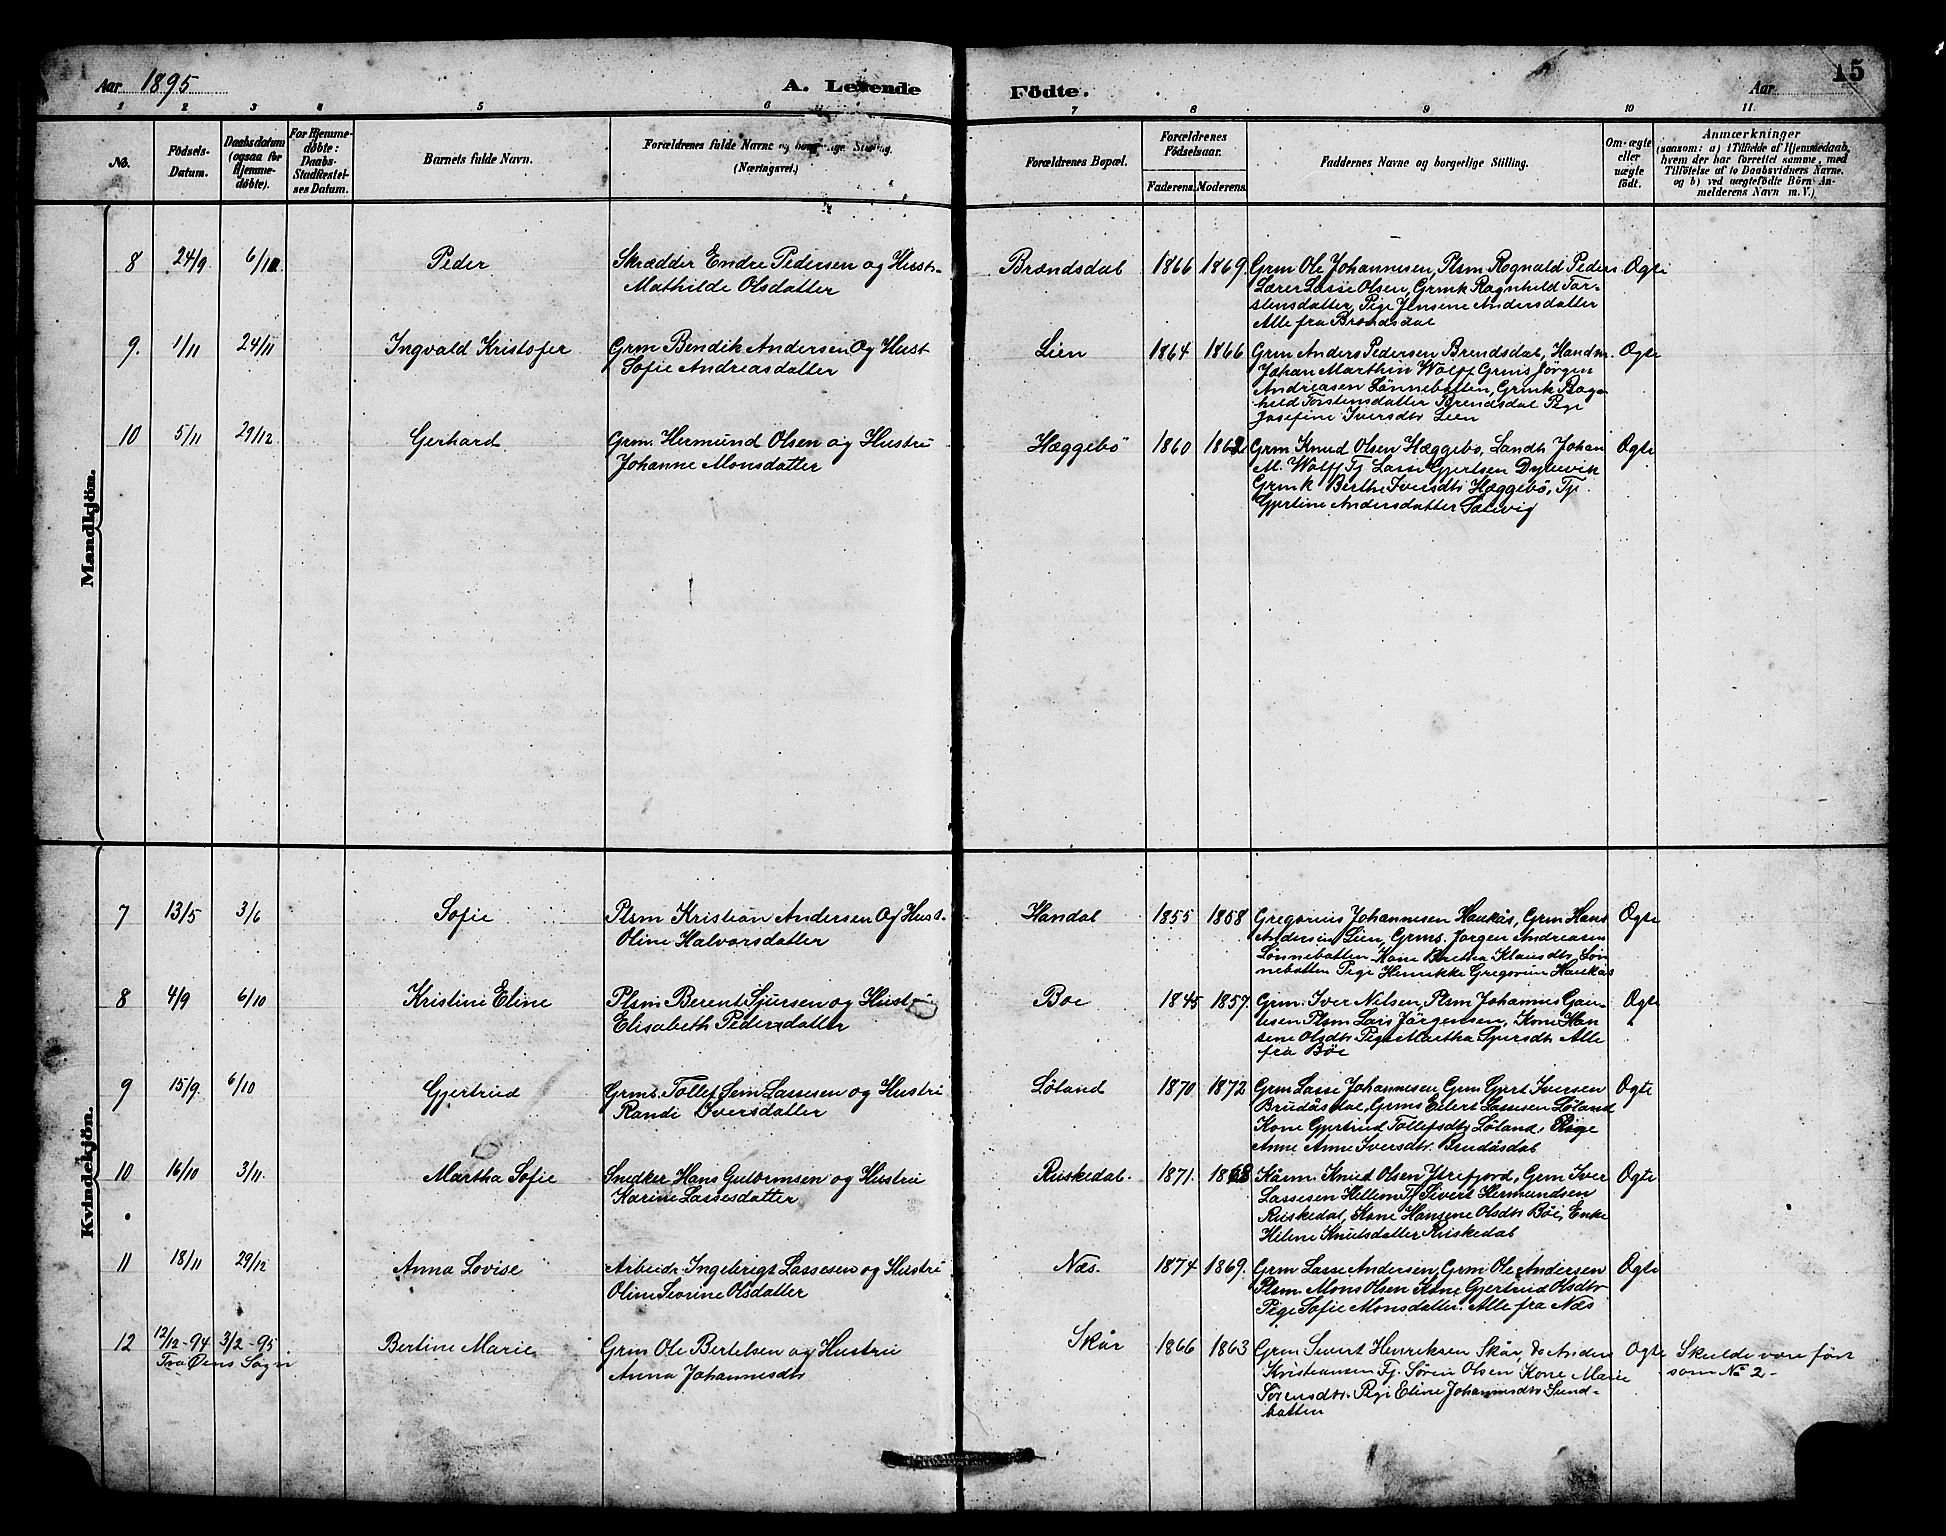 Aar 1895
A. Levende
Födte.
Aar
15
1 2 3 4 5 6 7 8 9 10 11
No.
Födsels-Datum.
Daabsdatum (ogsaa for Hjemme-döbte).
For Hjemme-döbte: Daabs-Stadfæstel-ses Datum.
Barnets fulde Navn.
Forældrenes fulde Navne og borgerlige Stilling. (Næringsvei.)
Forældrenes Bopæl.
Forældrenes Födselsaar.
Faderens. Moderens.
Faddernes Navne og borgerlige Stilling.
Om ægte eller uægte födt.
Anmærkninger
(saasom: a) i Tilfælde af Hjemmedaab, hvem der har forrettet samme, med Tilföielse af to Daabsvidners Navne. og b) ved uægtefödte Börn An-melderens Navn m. V.)
Mandkjön.
8 24/9 6/10 Peder
Skrædder Endre Pedersen og Hustr.
Mathilde Olsdatter
Brændsdal 1866 1869
Grm Ole Johannesen, Plsm Rognald Peders
Lærer Lasse Olsen, Grmk Ragnhild Tor-
stensdatter, Pige Jensine Andersdatter
Alle fra Brændsdal
Ægte
9. 1/11 24/11 Ingvald Kristofer
Grm Bendik Andersen og Hust
Sofie Andreasdatter
Lien 1864 1866
Grm Anders Pedersen Brendsdal, Handm.
Johan Marthin Wolff Grms Jörgen
Andreasen Lönnebotten, Grmk Ragn
hild Torstensdatter Brendsdal Pige
Josefine Iversdtr Lien
Ægte
10 5/11 29/12 Gerhard
Grm. Hermund Olsen og Hustru
Johanne Monsdatter
Hæggebö 1860 1862
Grm Knud Olsen Hæggebö, Landh Johan
M. Wolff Tj Lasse Gjertsen Dylevik
Grmk Berthe Iversdtr Hæggebö, Tj.
Gjertine Andersdatter Sætevig
Ægte
Kvindekjön.
7 13/5 3/6 Sofie
Plsm Kristian Andersen og Hust.
Oline Halvorsdatter
Handal 1855 1858
Gregorius Johannesen Haukås, Grm Hans
Andersen Lien, Grms. Jørgen Andreasen
Lönnebotten Kone Bertha Klausdtr Lön
nebotten Pige Henrikke Gregorius Haukås
Ægte
8 4/9 6/10 Kristine Eline
Plsm Berent Sjursen og Hustr
Elisabeth Pedersdatter
Boe 1845 1857
Grm. Iver Nilsen, Plsm Johannes Gau-
tesen Plsm Lars Jörgensen, Kone Han
sine Olsdtr Pige Martha Sjursdtr Alle
fra Böe
Ægte
9 15/9. 6/10 Gjertrud
Grms. Tollef Sem Lassesen og Hustru
Randi Iversdatter
Löland 1870 1872
Grm Lasse Johannesen, Grm Gjert Iversen
Brudåsdal, Grms Eilert Lassesen Löland
Kone Gjertrud Tollefsdtr Löland, Pige
Anne Anne Iversdtr. Brudåsdal
Ægte
10 16/10 3/11. Martha Sofie
Snedker Hans Gulormsen og Hustru
Karine Lassesdatter
Ruskedal. 1871. 1868
Kårm. Knud Olsen Ytrefjord, Grm Iver
Lassesen Hellem Tj Sivert Hermundsen
Ruskedal, Kone Hansine Olsdtr Böe, Enke
Helene Knutsdatter Ruskedal
Ægte
11 18/11 29/12 Anna Lovise
Arbeidr Ingebrigt Lassesen og Hustru
Oline Severine Olsdatter
Næs. 1874 1869.
Grm Lasse Andersen, Grm Ole Andersen
Plsm. Mons Olsen Kone Gjertrud Olsdtr
Pige Sofie Monsdatter. Alle fra Næs
Ægte
12 12/12-94 3/2-95. Bertine Marie
Fra Øens Sogn
Grm Ole Bertelsen og Hustru
Anna Johannesdtr
Skår 1866 1863
Grm Sivert Henriksen Skår, do Anders
Kristiansen Tj. Sören Olsen Kone Marie
Sörensdtr. Pige Eline Johannesdtr Sund-
botten
Ægte
Skulde være fört
som No 2.